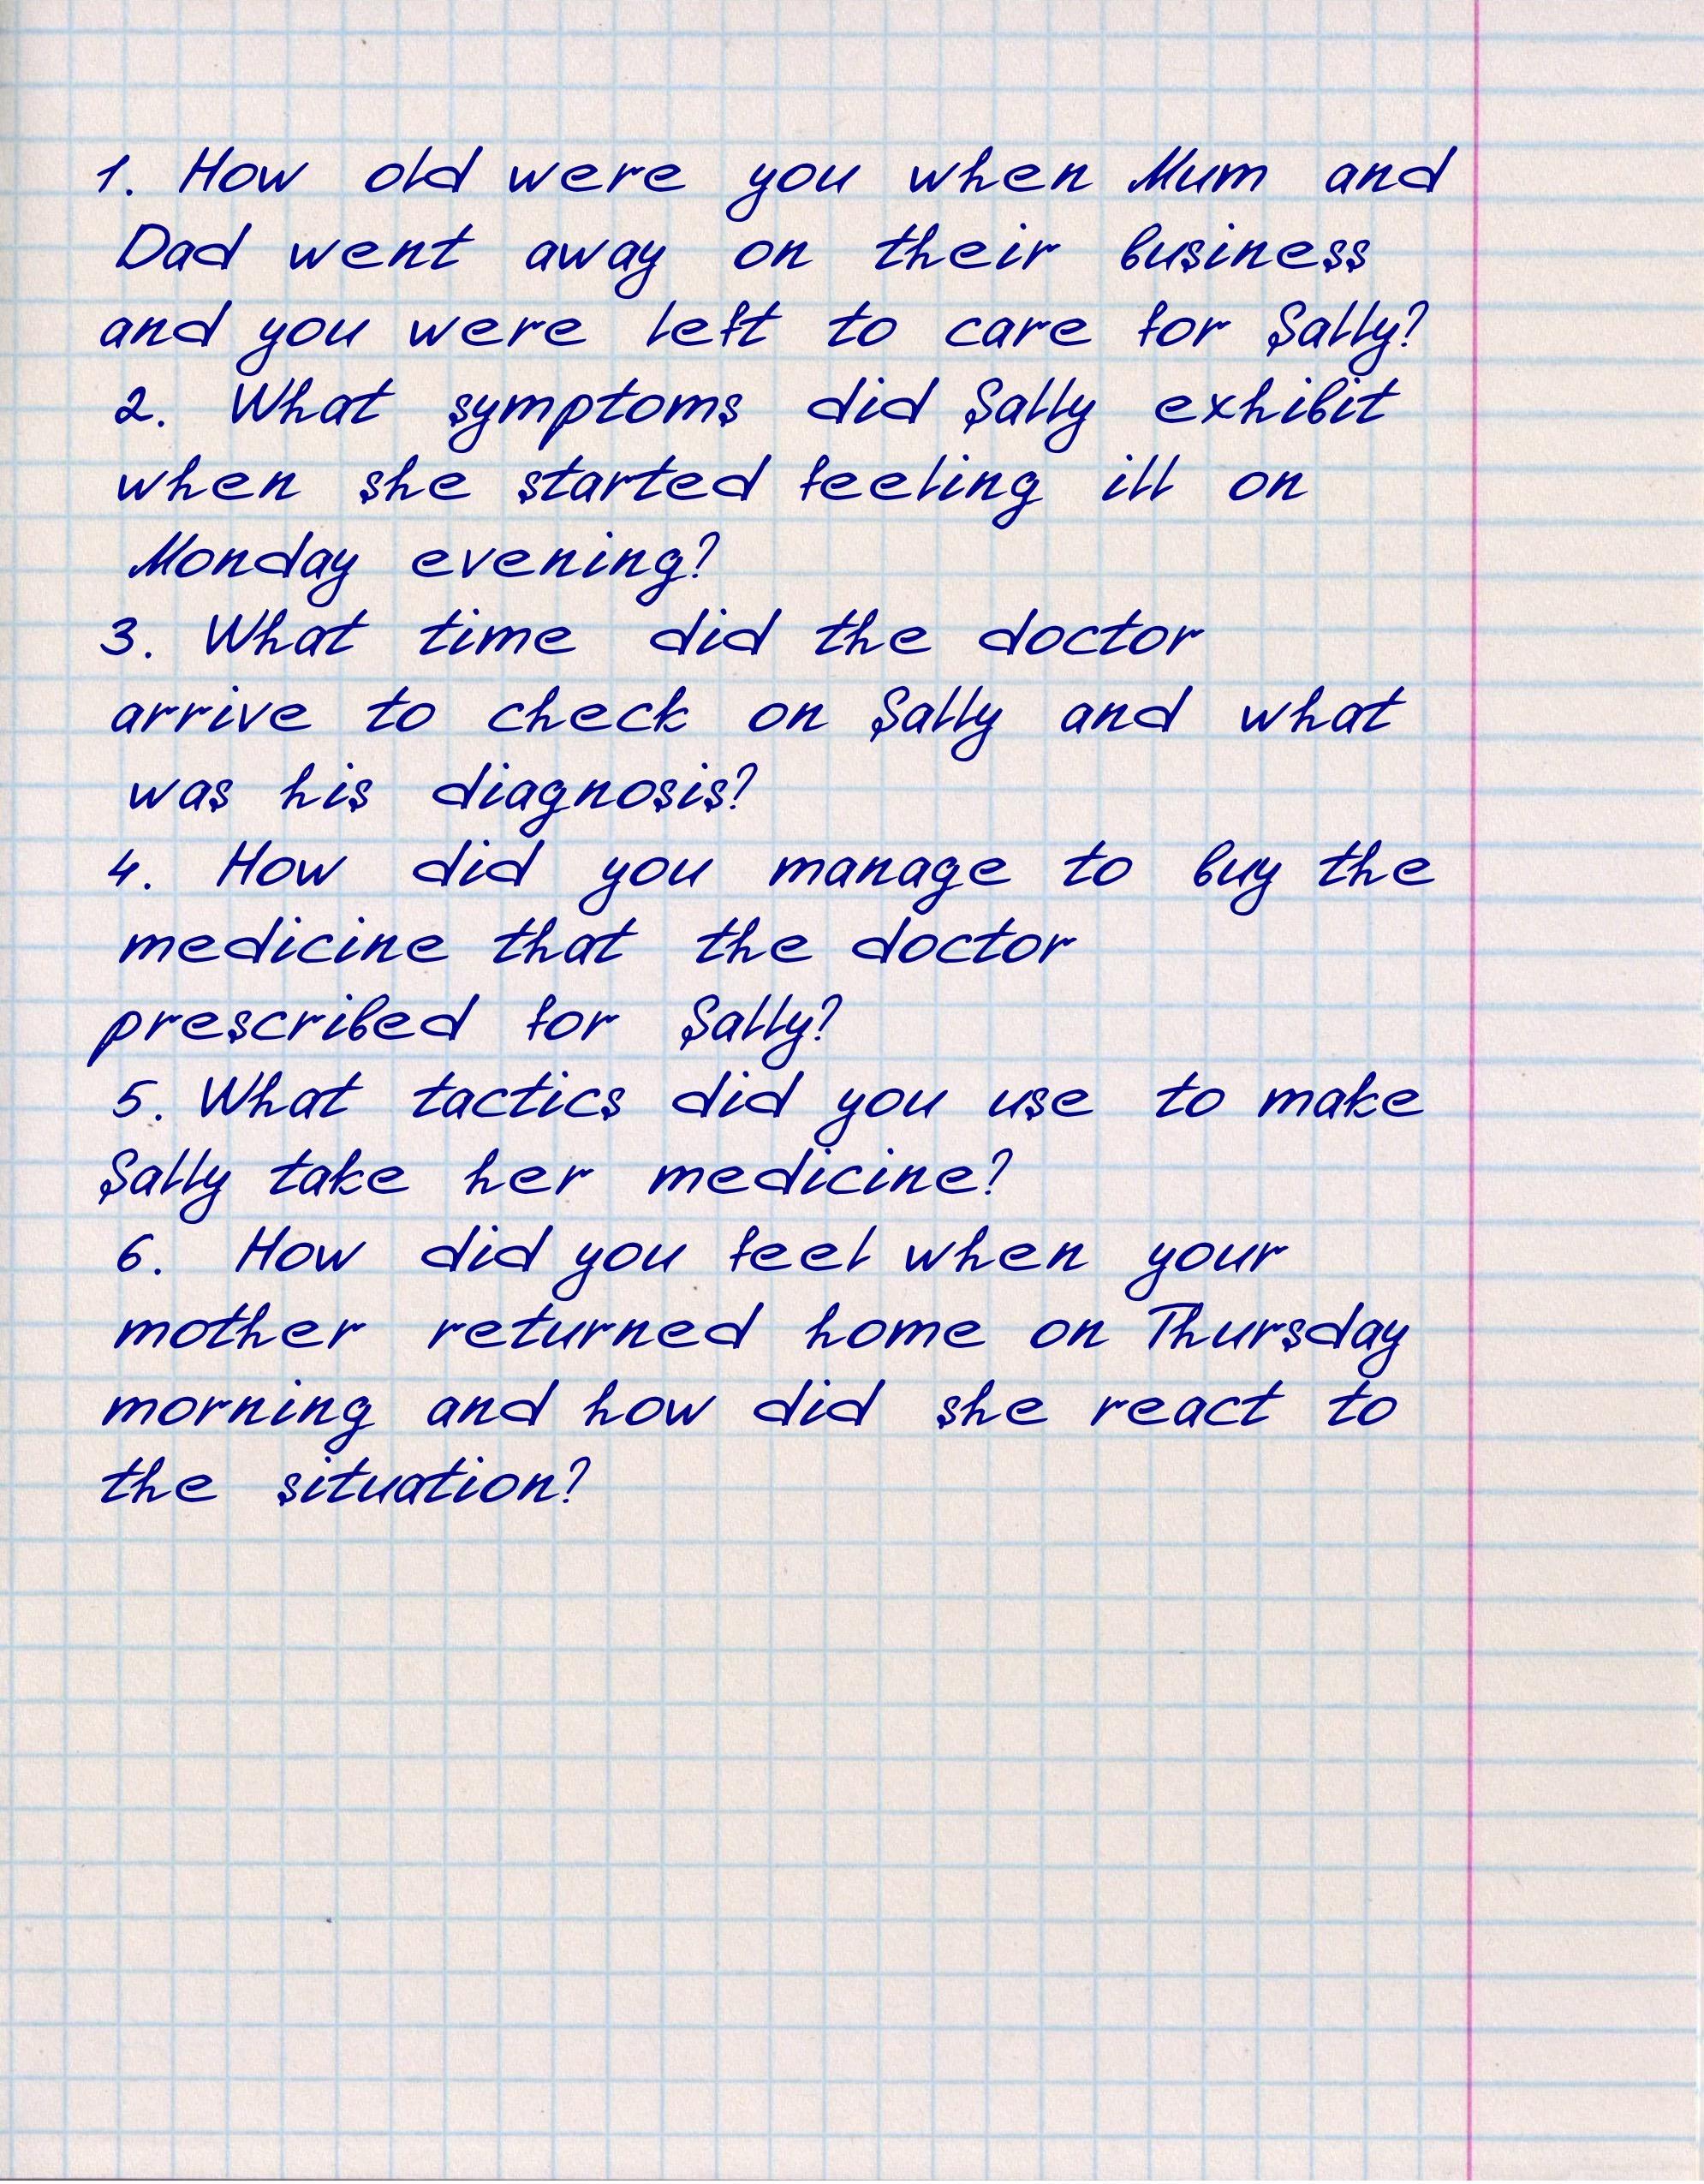 1. How old were you when Mum and
Dad went away on their business
and you were left to care for Sally?
2. What symptoms did Sally exhibit
when she started feeling ill on
Monday evening?
3. What time did the doctor
arrive to check on Sally and what
was his diagnosis?
4. How did you manage to buy the
medicine that the doctor
prescribed for Sally?
5. What tactics did you use to make
Sally take her medicine?
6. How did you feel when your
mother returned home on Thursday
morning and how did she react to
the situation?